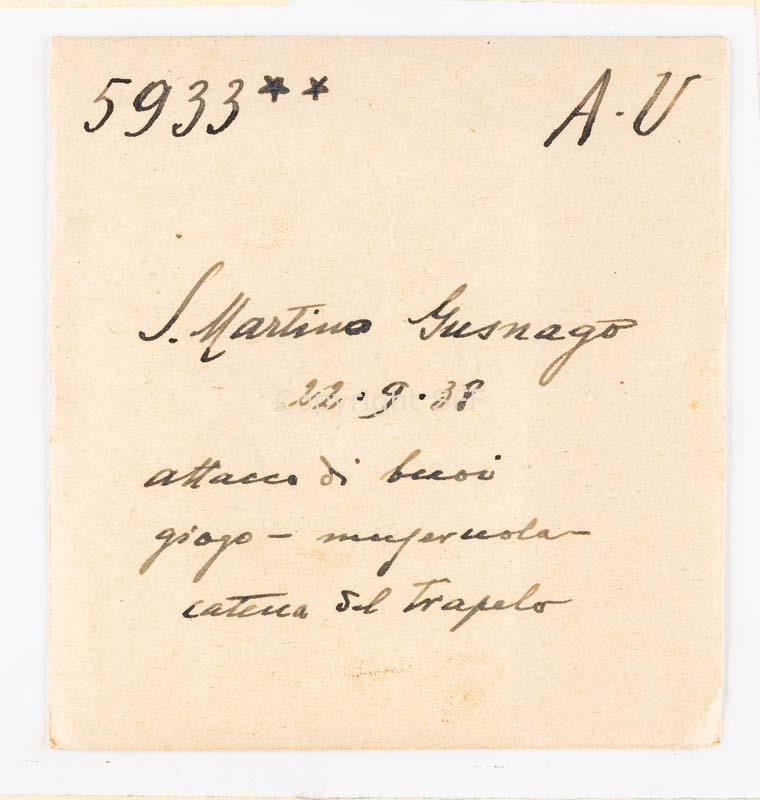 5933** A.U
S. Martino Gusnago
22.9.38
attacco di buoi
giogo - museruola -
catena del trapelo